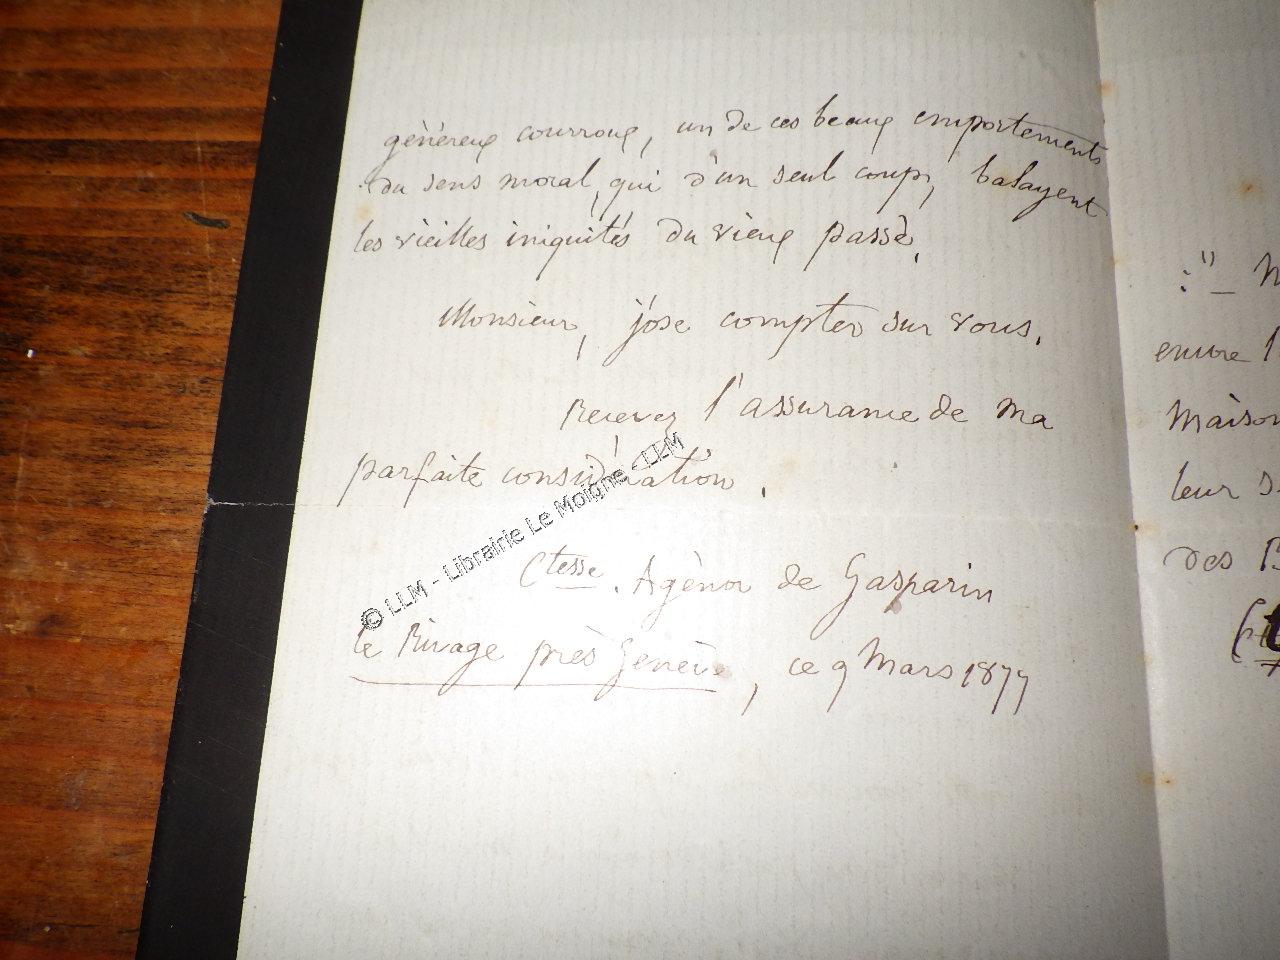 généreux courroux, un de ces beaux emportements
du sens moral, qui d'un seul coup, balayent
les vieilles iniquités du vieux passé.
Monsieur, j'ose compter sur vous.
Recevez l'assurance de ma
parfaite considération.
Ctesse. Agénor de Gasparin
le Rivage près Genève, ce 9 Mars 1877
© LLM - Librairie Le Moigne - LLM
:"_
encore
Maison
leur
des